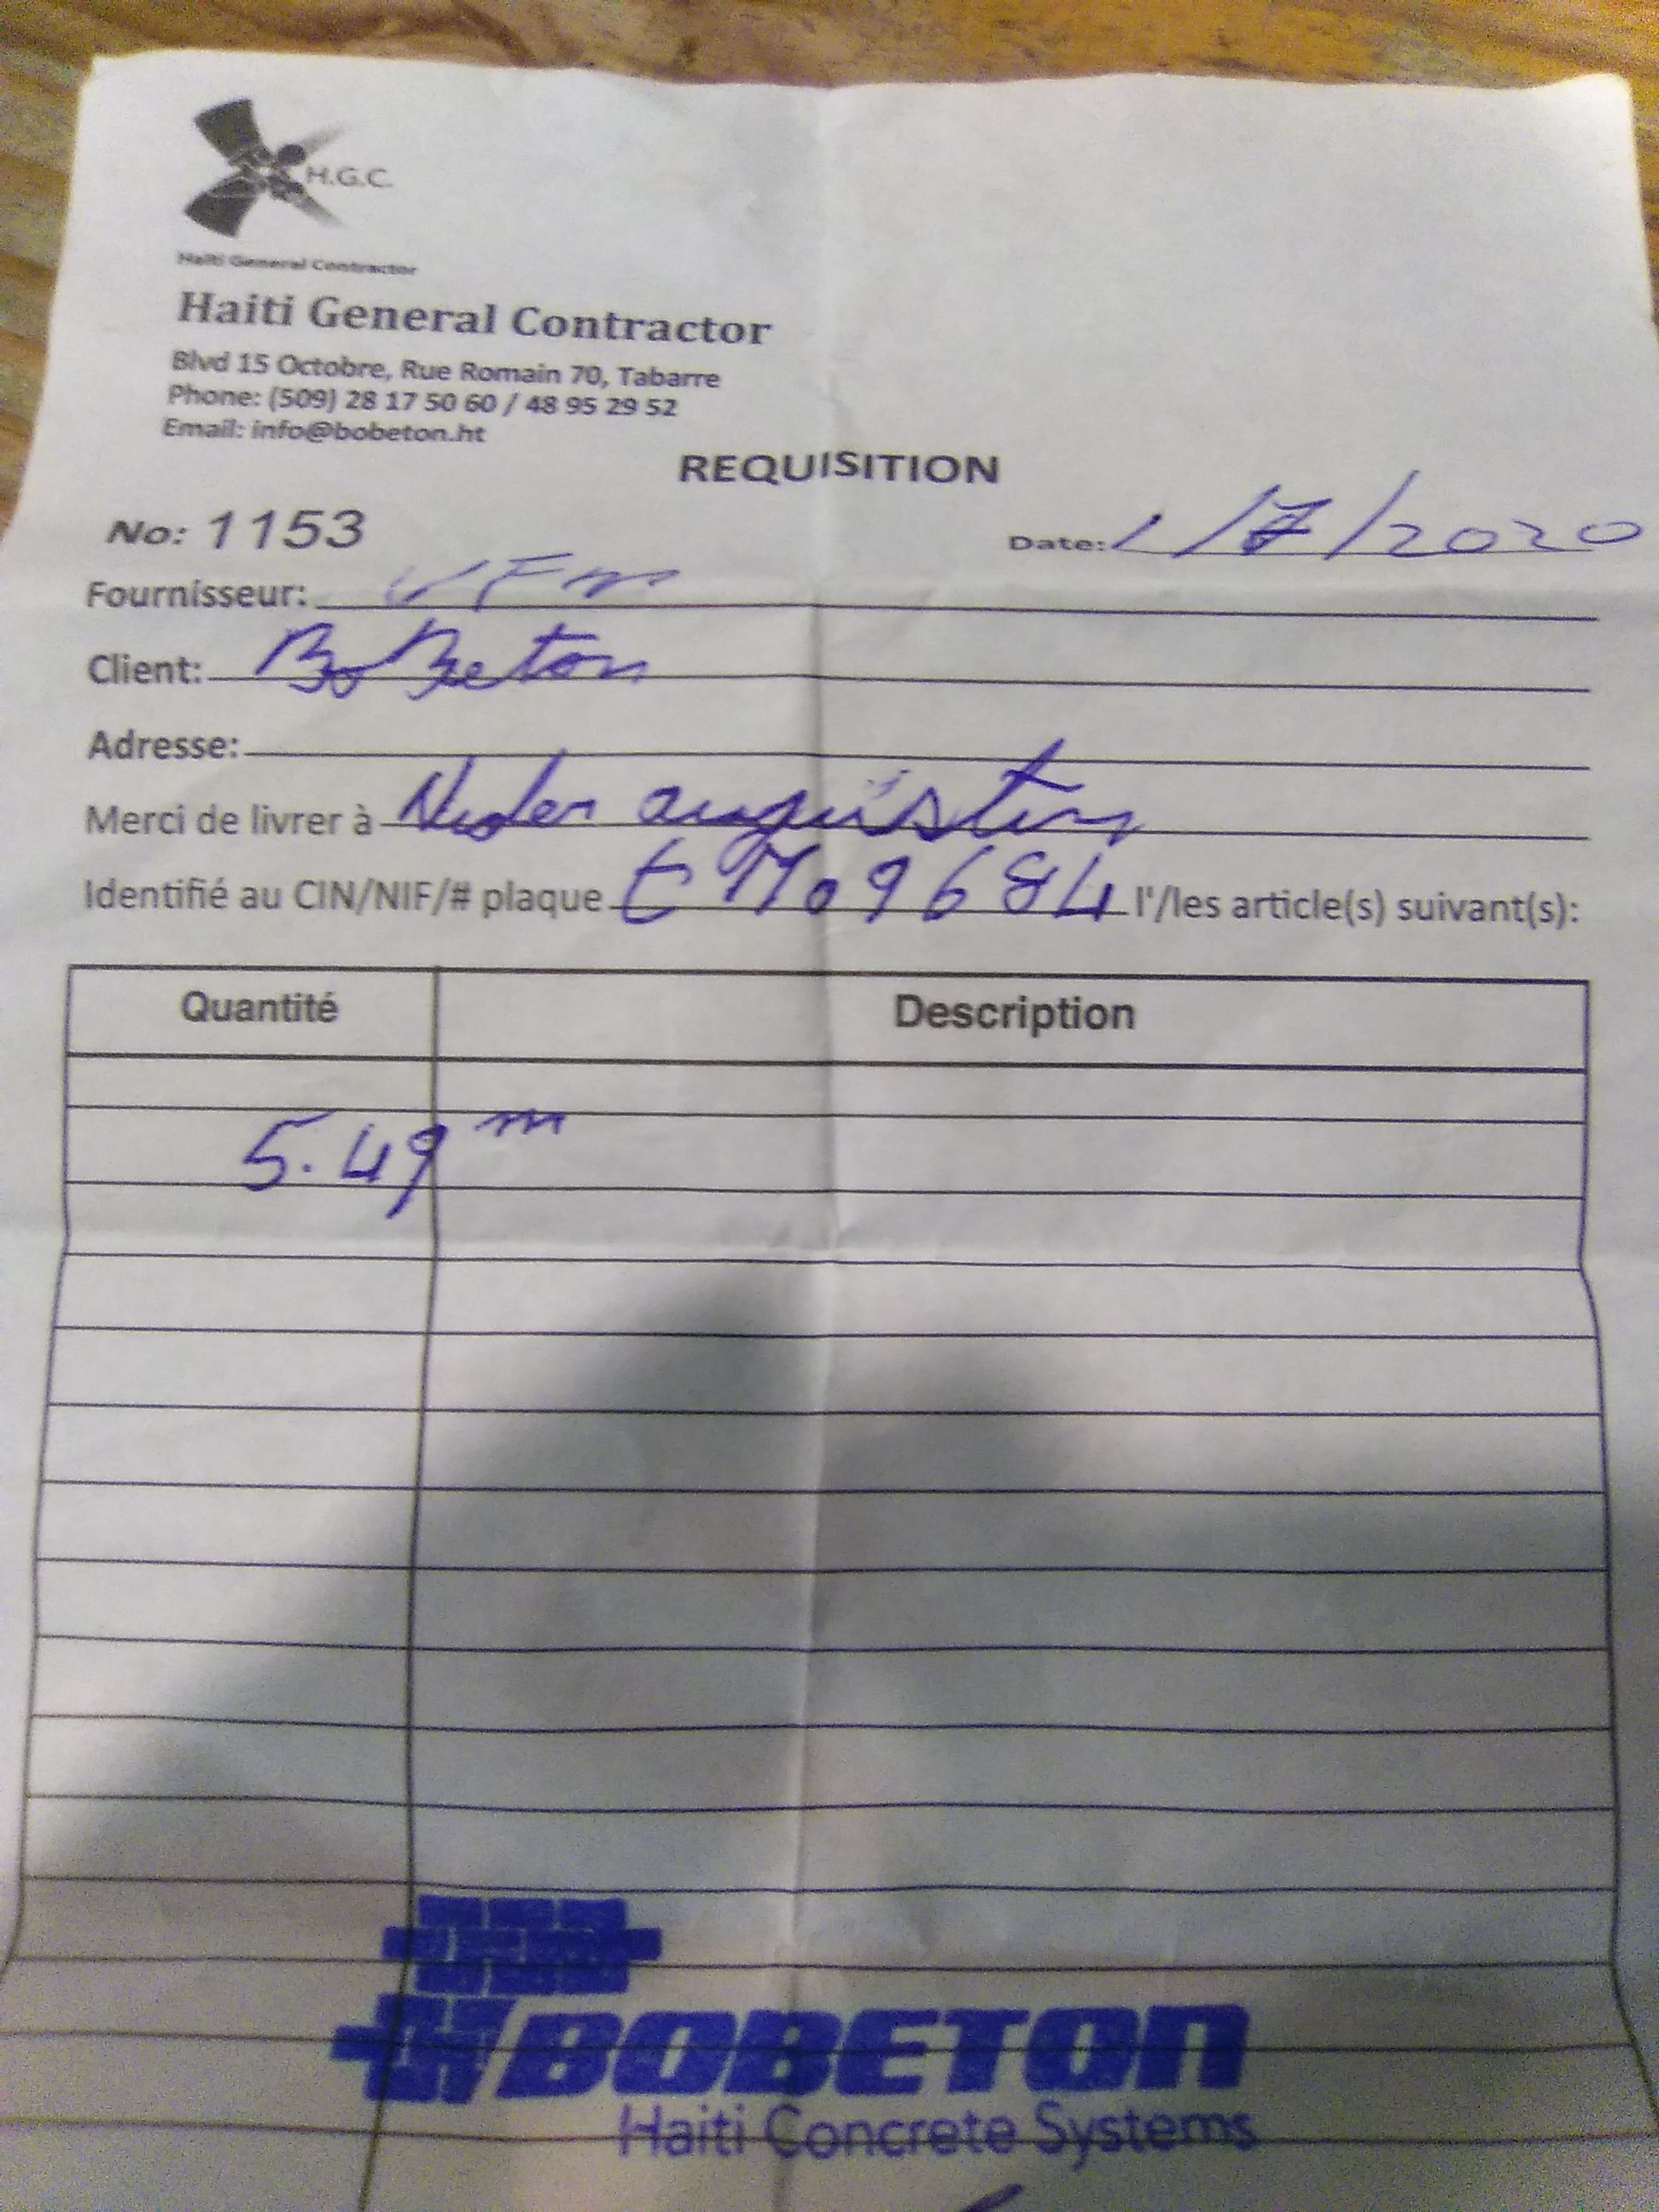 H.G.C.
Haiti General Contractor
Haiti General Contractor
Blvd 15 Octobre, Rue Romain 70, Tabarre
Phone: (509) 28 17 50 60 / 48 95 29 52
Email: info@bobeton.ht
REQUISITION
No: 1153 Date: 1/7/2020
Fournisseur:
Client: Bo Beton
Adresse:
Merci de livrer à augustin
Identifié au CIN/NIF/# plaque 09684 l'/les article(s) suivant(s):
Quantité Description
5.49 m
BOBETON
Haiti Concrete Systems